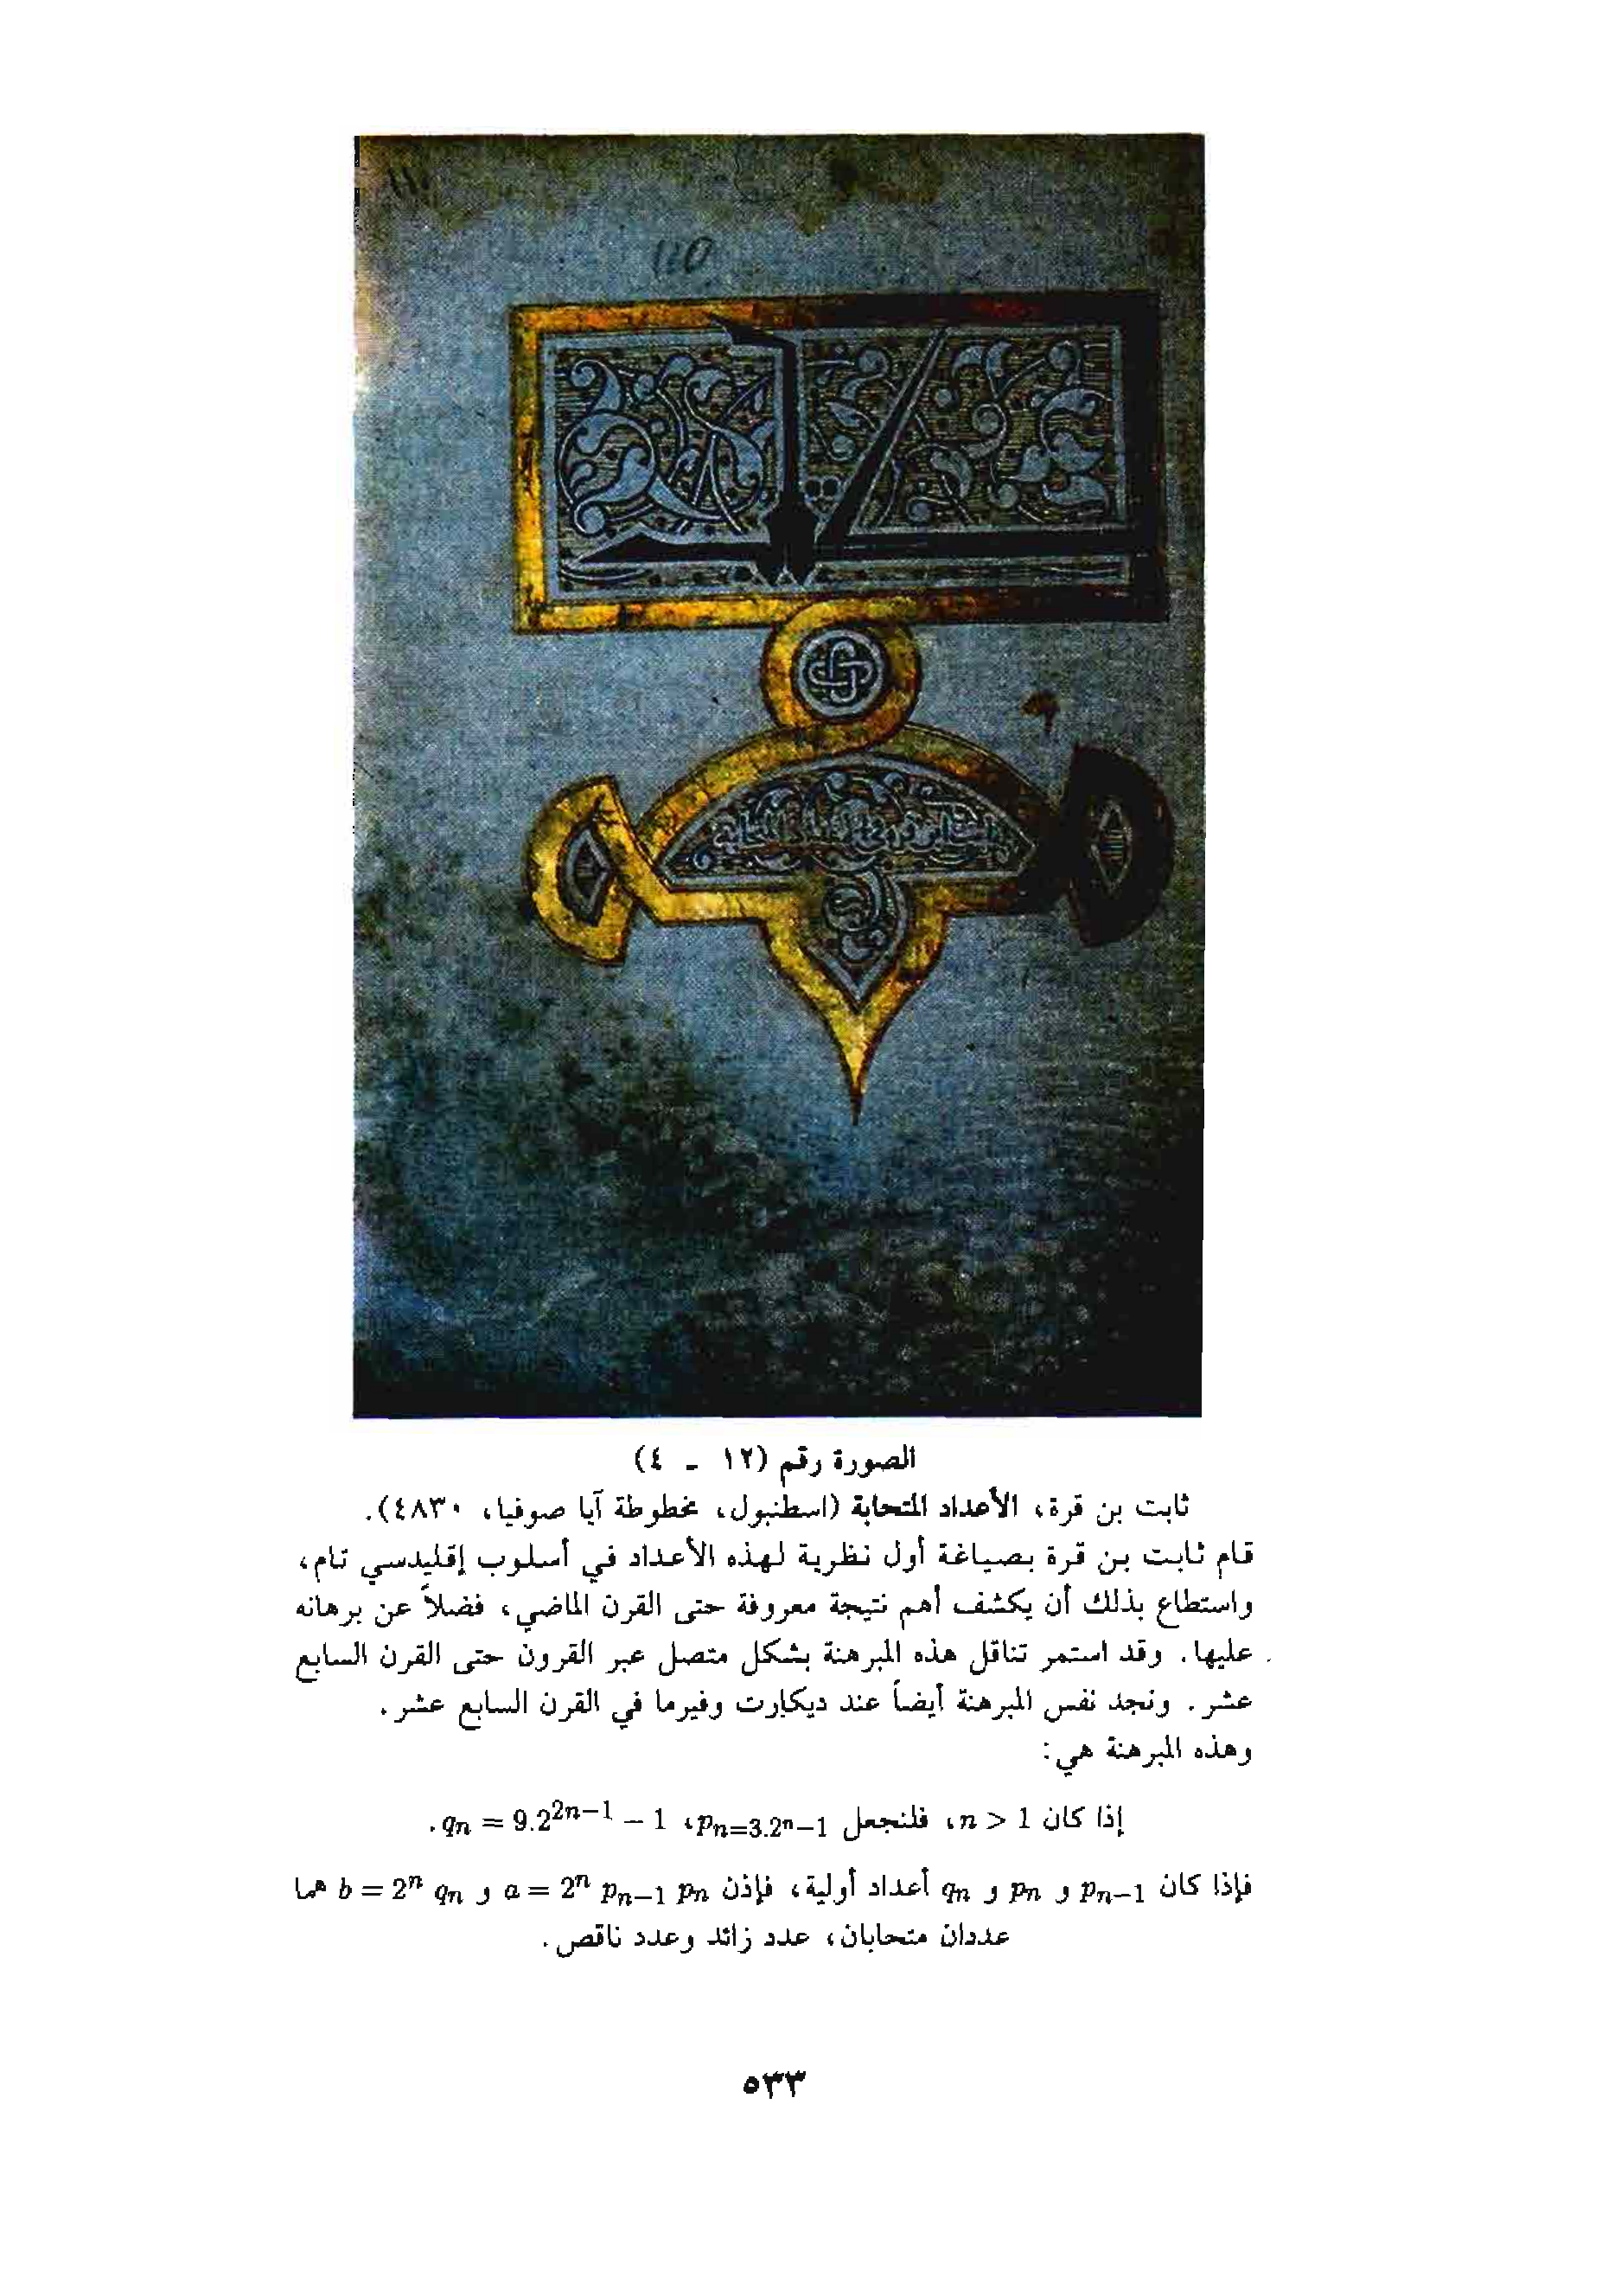 110
الصورة رقم (١٢ - ٤)
ثابت بن قرة، الأعداد المتحابة (اسطنبول، مخطوطة آيا صوفيا، ٤٨٣٠).
قام ثابت بن قرة بصياغة أول نظرية لهذه الأعداد في أسلوب إقليدسي تام،
واستطاع بذلك أن يكشف أهم نتيجة معروفة حتى القرن الماضي، فضلاً عن برهانه
عليها. وقد استمر تناقل هذه المبرهنة بشكل متصل عبر القرون حتى القرن السابع
عشر. ونجد نفس المبرهنة أيضاً عند ديكارت وفيرما في القرن السابع عشر.
وهذه المبرهنة هي:
إذا كان n > 1، فلنجعل pₙ₌₃.₂ⁿ₋₁، qₙ = 9.2²ⁿ⁻¹ – 1.
فإذا كان pₙ₋₁ و pₙ و qₙ أعداد أولية، فإذن a = 2ⁿ pₙ₋₁ pₙ و b = 2ⁿ qₙ هما
عددان متحابان، عدد زائد وعدد ناقص.
٥٣٣